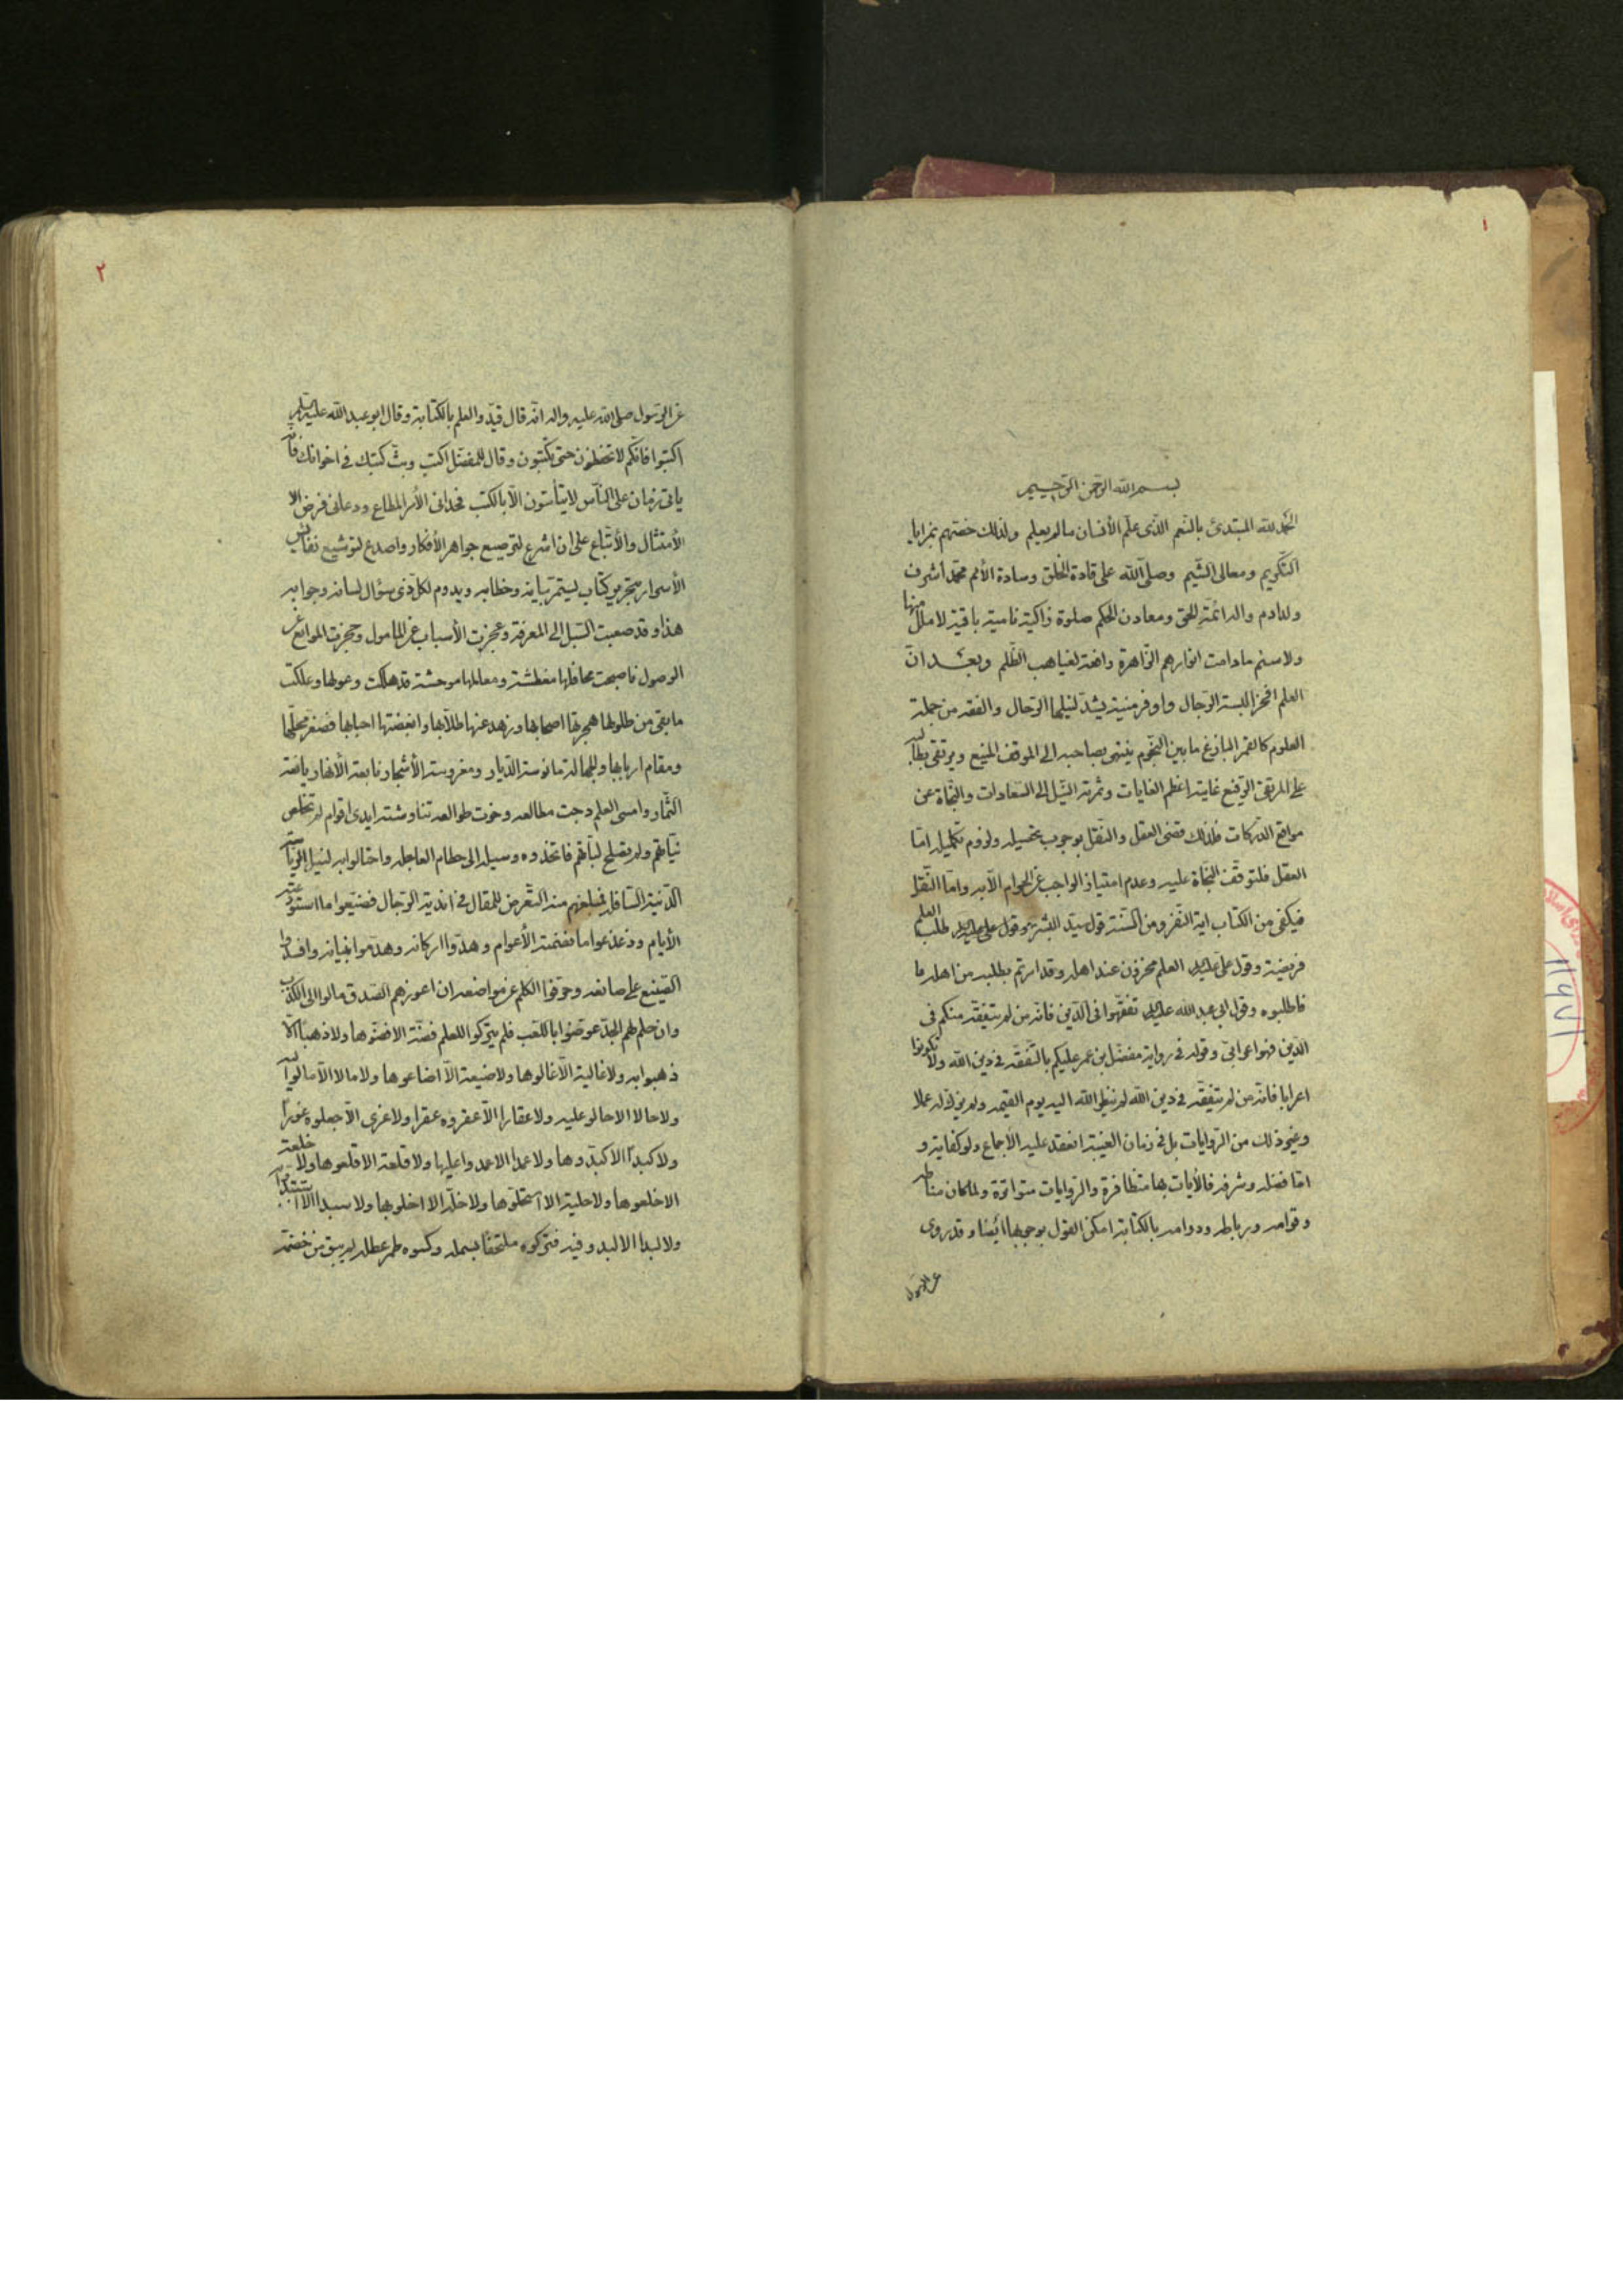 ١
بسم الله الرحمن الرحيم
الحمد لله المبتدئ بالنعم الذى علم الأنسان ما لم يعلم ولذلك خصّهم بمزايا
التكريم ومعالى الشيم وصلى الله على قادة الخلق وسادة الأمم محمد أشرف
ولد ادم واله ائمة الحق ومعادن الحكم صلوة زاكية نامية باقية لا ملل منها
ولا سئم ما دامت انوارهم الزاهرة دافعة لغياهب الظلم وبعد ان
العلم افخر البسة الرجال واوفر منية يشد لنيلها الرحال والفقه من جملة
العلوم كالقمر البازغ ما بين النجوم ينتهى بصاحبه الى الموقف المنيع ويرتقى بطالبه
على المرتقى الرفيع غايته اعظم الغايات وثمرته النيل الى السعادات والنجاة عن
مواقع الدركات فلذلك قضى العقل والنقل بوجوب تحصيله ولزوم تكميله امّا
العقل فلتوقف النجاة عليه وعدم امتياز الواجب عن الحرام الّا به وامّا النقل
فيكفى من الكتاب اية النفر ومن السنة قول سيد البشر طلب العلم
فريضة وقول على عليه السلام العلم مخزون عند اهله وقد امرتم بطلبه من اهله
فاطلبوه وقول ابى عبد الله عليه السلام تفقهوا فى الدين فانه من لم يتفقه منكم فى
الدين فهو اعرابى وقوله فى رواية مفضل بن عمر عليكم بالتفقه فى دين الله ولا تكونوا
اعرابا فانه من لم يتفقه فى دين الله لم ينظر الله اليه يوم القيمة ولم يزك له عملا
وغير ذلك من الروايات بل فى زمان الغيبة انعقد عليه الأجماع ولو كفاية و
امّا فضله وشرفه فالأيات بها متظافرة والروايات متواترة ولما كان مناطه
وقوامه ورباطه ودوامه بالكتابة امكن القول بوجوبها ايضا وقد روى
عن الرسول
٢
عن الرسول صلى الله عليه واله انه قال قيدوا العلم بالكتابة وقال ابو عبد الله عليه السلم
اكتبوا فانكم لا تحفظون حتى تكتبون وقال للمفضل اكتب وبث كتبك فى اخوانك فانه
ياتى زمان على الناس لا يتأنسون الّا بالكتب فحدانى الأمر المطاع ودعانى فرض
الأمتثال والأتباع على ان اشرع لترصيع جواهر الأفكار واصدع لتوشيع نفايس
الأسرار بتحرير كتاب يستمر بيانه وخطابه ويدوم لكل ذى سؤال لسانه وجوابه
هذا وقد صعبت السبل الى المعرفة وعجزت الأسباب عن المامول وحجزت الموانع عن
الوصول فاصبحت محافلها مغطشة ومعالمها موحشة قد هلكت
ما بقى من طلولها هجرتها اصحابها وزهد عنها طلابها وابغضتها احبابها فصغر محلها
ومقام اربابها وللجهالة مانوسة الديار ومغروسة الأشجار نابعة الأنهار يانعة
الثمار وامسى العلم دجت مطالعه وخوت طوالعه تناوشته ايدى اقوام لم تخلص
نياتهم ولم يصلح فاتخذوه وسيلة الى حطام العاجلة واحتالوا به لنيل الرياسة
الدنية السافلة فمبلغهم منه التعرض للمقال فى اندية الرجال فضيعوا ما
الأيام وذعذعوا ما نغمته الأعوام وهدّوا اركانه وهدموا بنيانه وافسدوا
الصنيع على صانعه وحرفوا الكلم عن مواضعه ان اعوزهم الصدق مالوا الى الكذب
وان خلم لهم الجد عوضوا باللعب فلم يتركوا للعلم فضة الا فضوها ولا ذهبا الا
ذهبوا به ولا غالية الّا غالوها ولا ضيعة الّا اضاعوها ولا مالا الّا مالوا اليه
ولا حالا الا حالو عليه ولا عقارا الّا عقروه عقرا ولا غرى الّا جعلوه غورا
ولا كبدا الا كبدوها ولا عمدا الا عمدوا عليها ولا قلعة الا قلعوها ولا خلعة
الا خلعوها ولا حلية الا استحلوها ولا خلة الا اخلوا بها ولا سبدا الا
ولا لبدا الا لبدوا فيه فتركوه ملتحفا بسمله وكسوه طمر عطله لم يبق من